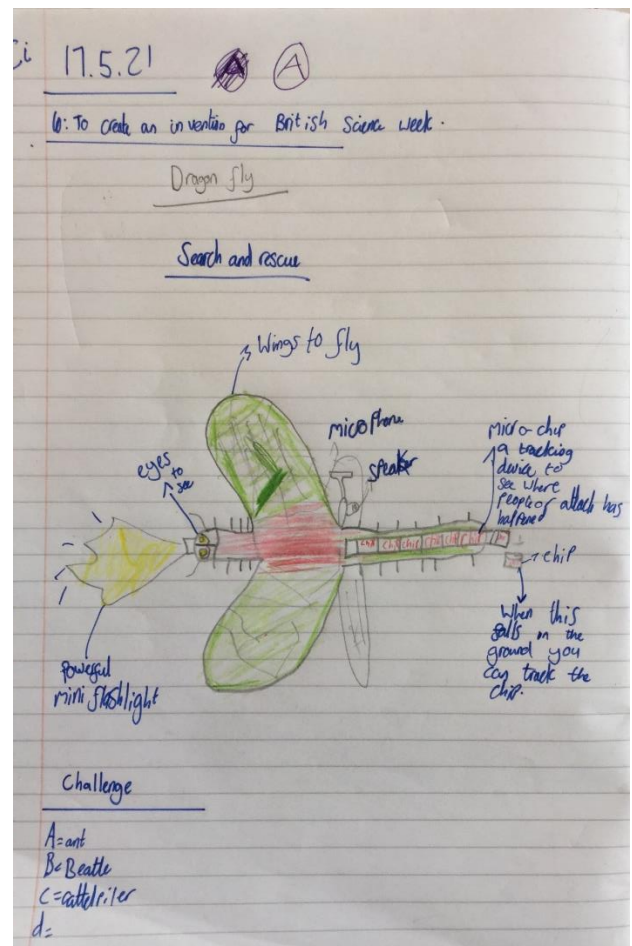 17.5.21 A A
6: To create an invention for British Science week.
Dragon fly
Search and rescue
Wings to fly
micophone
speaker
eyes
to
see
micro-chip
a tracking
device to
see where
people or attack has
happened
chip chip chip chip chip
chip
When this
falls in the
ground you
can track the
chip.
powerful
mini flashlight
Challenge
A=ant
B=Beatle
C=cattelpiler
d=